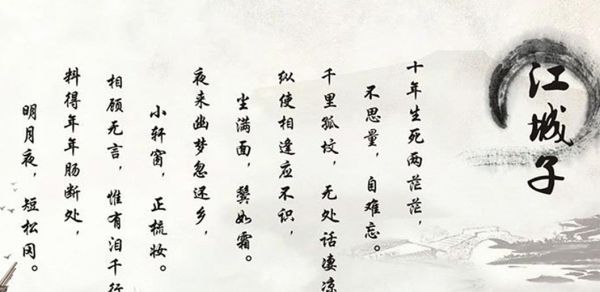 江城子
十年生死两茫茫，
不思量，自难忘。
千里孤坟，无处话凄凉
纵使相逢应不识，
尘满面，鬓如霜。
夜来幽梦忽还乡，
小轩窗，正梳妆。
相顾无言，惟有泪千行
料得年年肠断处，
明月夜，短松冈。